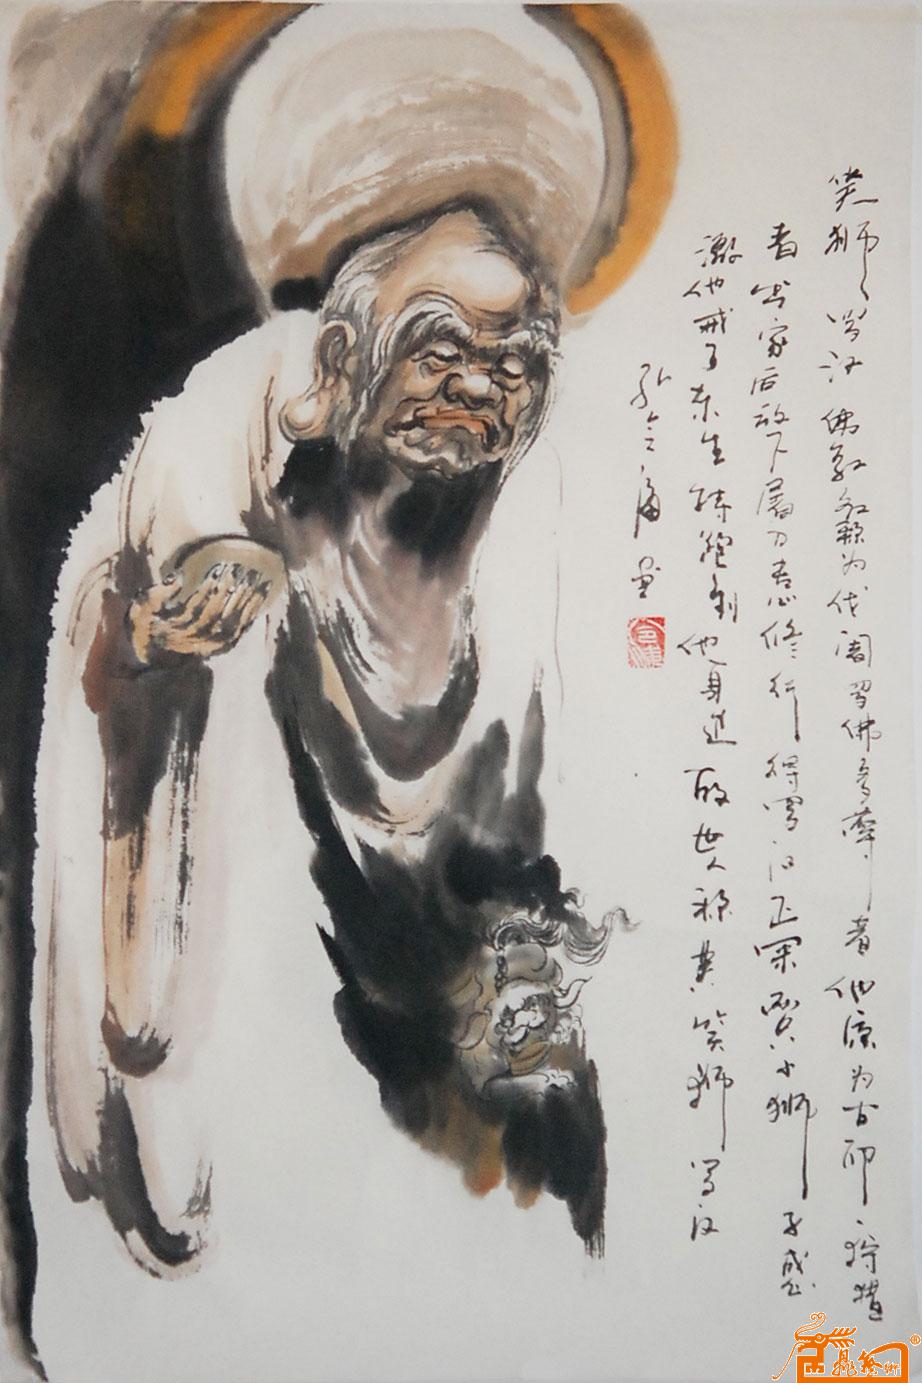 笑狮罗汉 佛教称为伐阇罗佛多尊者 他原为古印 狩猎
者出家后放下屠刀 修行得罗汉正果 小狮子感
激他戒了杀生 特 到他身边 故世人称其笑狮罗汉
孔 画